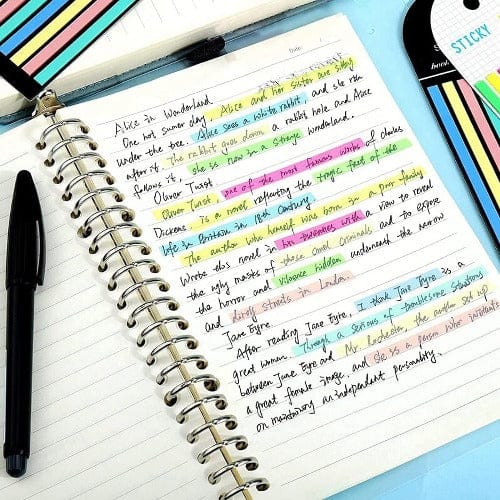 STICKY
Date:
Alice in Wonderland
One hot sumer day, Alice and her sister are sitting
under the tree. Alice sees a white rabbit, and she run
after it. The rabbit goes down a rabbit hole and Alice
follows it. she is now in a strange wonderland.
Oliver Twist
Oliver Twist one of the most famous works of charles
Dickens, is a novel reflecting the tragic feet of the
life in Britain in 18th century.
The author who himself was born in a poor family
Wrote this novel in his twenties with a view to reveal
the ugly masks of those cruel criminals and to expose
the horror and violence hidden underneath the narrow
and dirty streets in London.
Jane Eyre.
After reading Jane Eyre, I think Jane Eyre is a
great woman. Through a serious of troublesome situations
between Jane Eyre and Mr Rochester, the author set up
a great female image, and she is a person who
on maintaining an independent personality.